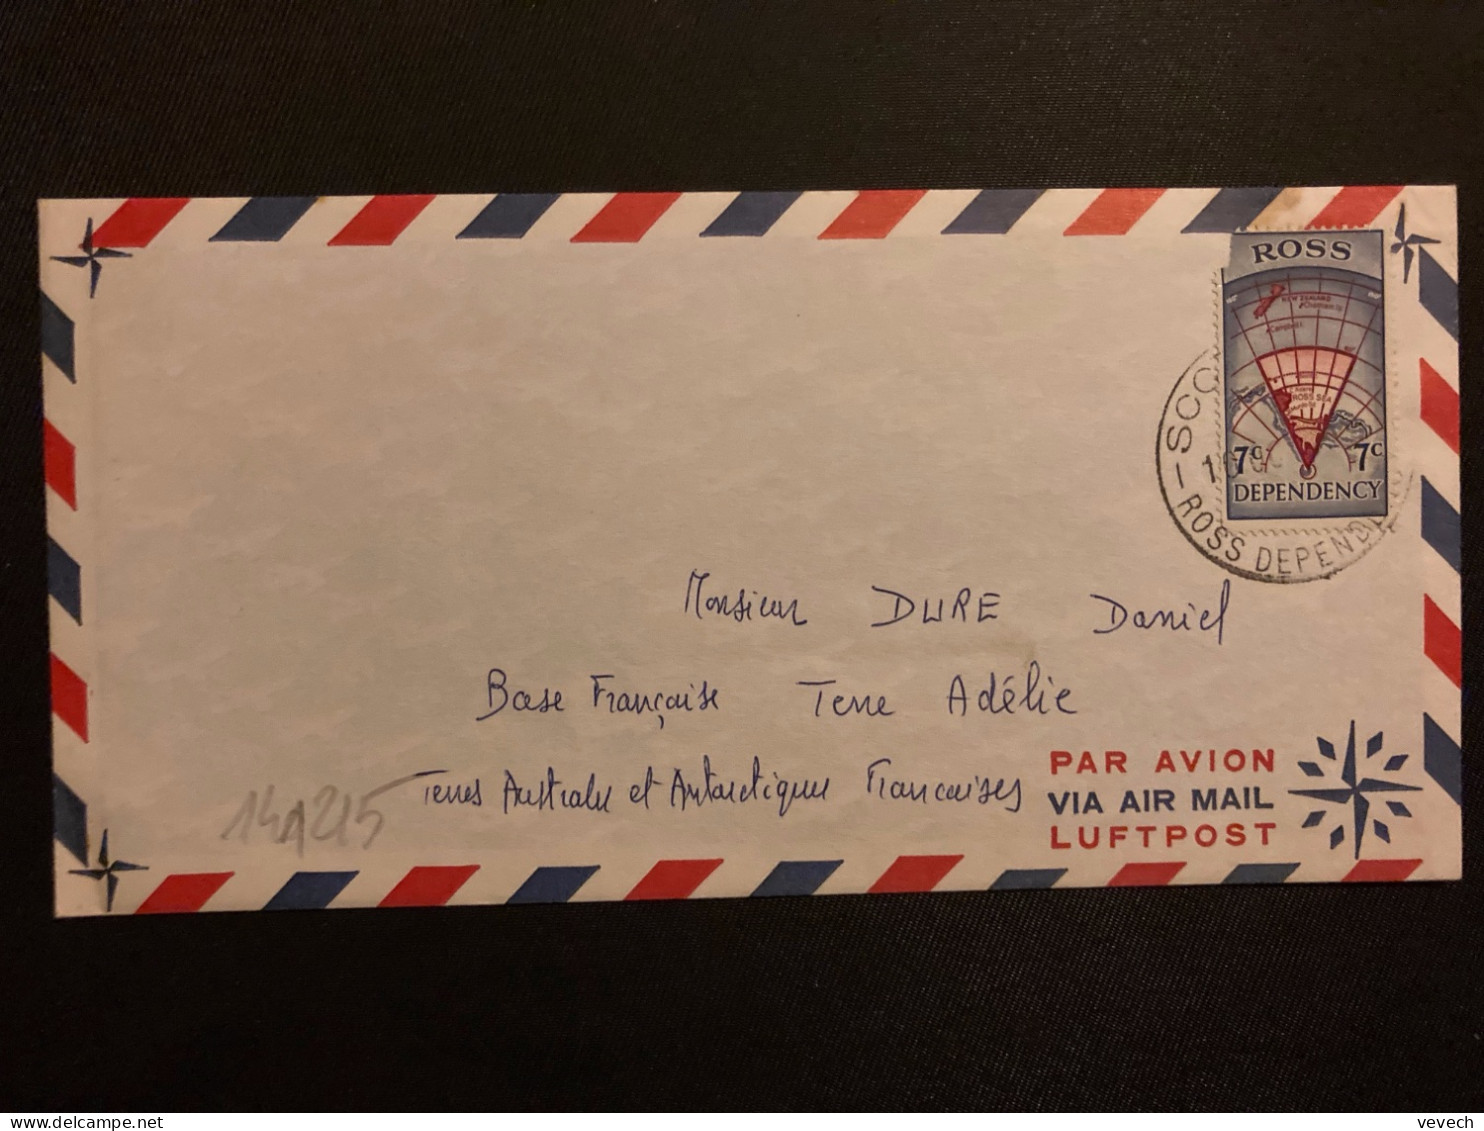 ROSS
NEW ZEALAND
Campbell I.
ROSS SEA
7c 7c
DEPENDENCY
ROSS DEPEND
Monsieur DURE Daniel
Base Française Terre Adélie
Terres Australes et Antarctiques Francaises
PAR AVION
VIA AIR MAIL
LUFTPOST
vevech